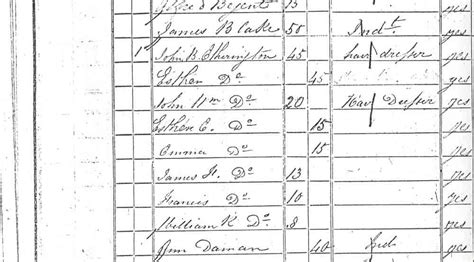 15 yes
James Blake 50 Ind.t yes
1 John B. Etherington 45 hair dresser yes
Esther Do 45 yes
John Wm Do 20 Hair Dresser yes
Esther E. Do 15 yes
Emma Do 15 yes
James H. Do 13 yes
Francis Do 10 yes
William K. Do 8 yes
Ann Daman 40 Ind yes